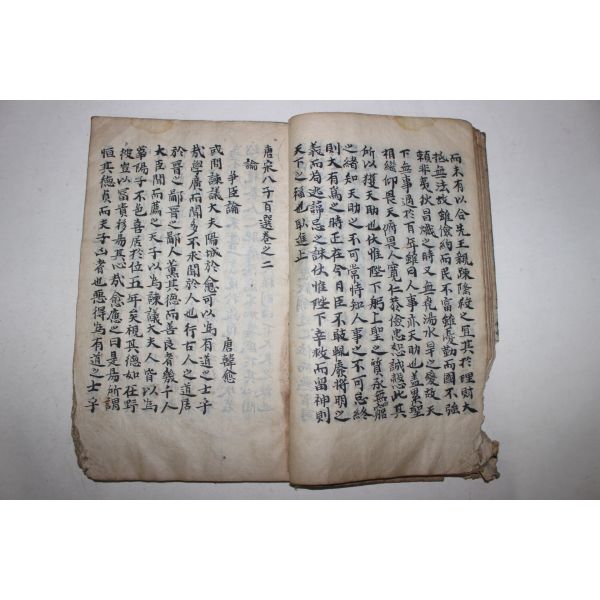 而未有以合先王親踈隆殺之宜其於理財大
抵無法故雖儉約而民不富雖憂勤而國不強
賴非夷狄昌熾之時又無堯湯水旱之變故天
下無事過於百年雖曰人事亦天助也盖累聖
相繼仰畏天俯畏人寬仁恭儉忠恕誠慤此其
所以獲天助也伏惟陛下躬上聖之質承無窮
之緖知天助之不可常恃知人事之不可怠終
則大有為之時正在今日臣不敢輒廢將明之
義而苟逃諱忌之誅伏惟陛下幸赦而留神則
天下之福也取進止
唐宋八子百選卷之二
論
爭臣論 唐韓愈
或問諫議大夫陽城於愈可以為有道之士乎
哉學廣而聞多不求聞於人也行古人之道居
於晉之鄙晉之鄙人薰其德而善良者幾千人
大臣聞而薦之天子以為諫議大夫人皆以為
華陽子不色喜居於位五年矣視其德如在野
彼豈以富貴移易其心哉愈應之曰是易所謂
恒其德貞而夫子凶者也惡得為有道之士乎